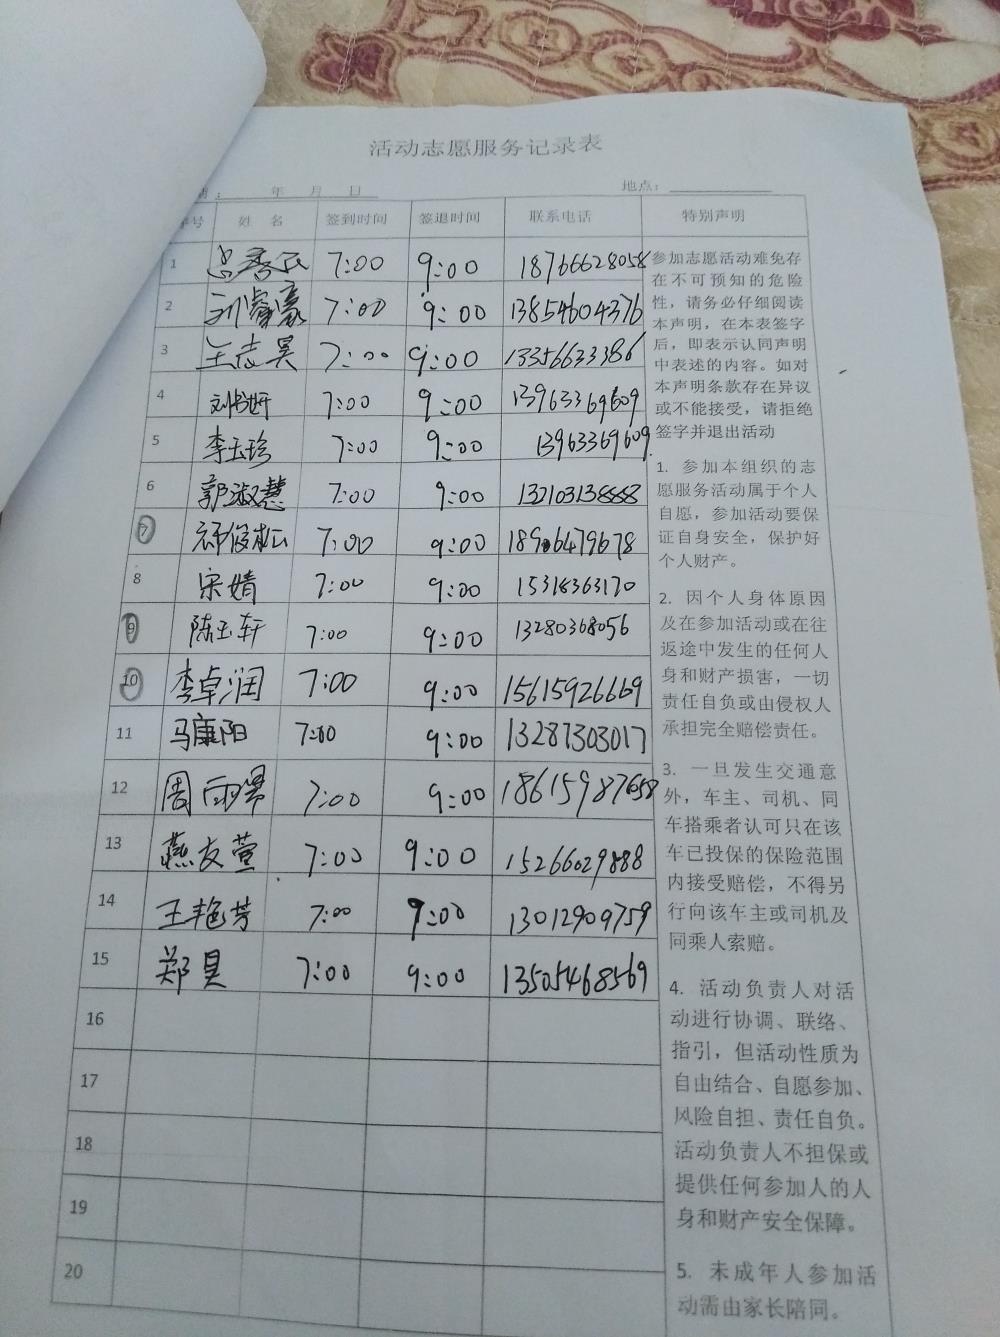 活动志愿服务记录表
年 月 日 地点：
序号 姓 名 签到时间 签退时间 联系电话 特别声明
1 7:00 9:00 18766628058
2 刘睿豪 7:00 9:00 13854604376
3 王志昊 7:00 9:00 13356633386
4 7:00 9:00 13963369609
5 李玉珍 7:00 9:00 13963369609
6 郭淑慧 7:00 9:00 13210313888
7 祁俊松 7:00 9:00 18906479678
8 宋婧 7:00 9:00 15318363170
9 陈玉轩 7:00 9:00 13280368056
10 李卓润 7:00 9:00 15615926669
11 马康阳 7:00 9:00 13287303017
12 周雨 7:00 9:00 18615987658
13 燕友萱 7:00 9:00 15266029888
14 王艳芳 7:00 9:00 13012909759
15 郑昊 7:00 9:00 13505468569
16
17
18
19
20
参加志愿活动难免存
在不可预知的危险
性，请务必仔细阅读
本声明，在本表签字
后，即表示认同声明
中表述的内容。如对
本声明条款存在异议
或不能接受，请拒绝
签字并退出活动
1. 参加本组织的志
愿服务活动属于个人
自愿，参加活动要保
证自身安全，保护好
个人财产。
2. 因个人身体原因
及在参加活动或在往
返途中发生的任何人
身和财产损害，一切
责任自负或由侵权人
承担完全赔偿责任。
3. 一旦发生交通意
外，车主、司机、同
车搭乘者认可只在该
车已投保的保险范围
内接受赔偿，不得另
行向该车主或司机及
同乘人索赔。
4. 活动负责人对活
动进行协调、联络、
指引，但活动性质为
自由结合、自愿参加、
风险自担、责任自负。
活动负责人不担保或
提供任何参加人的人
身和财产安全保障。
5. 未成年人参加活
动需由家长陪同。